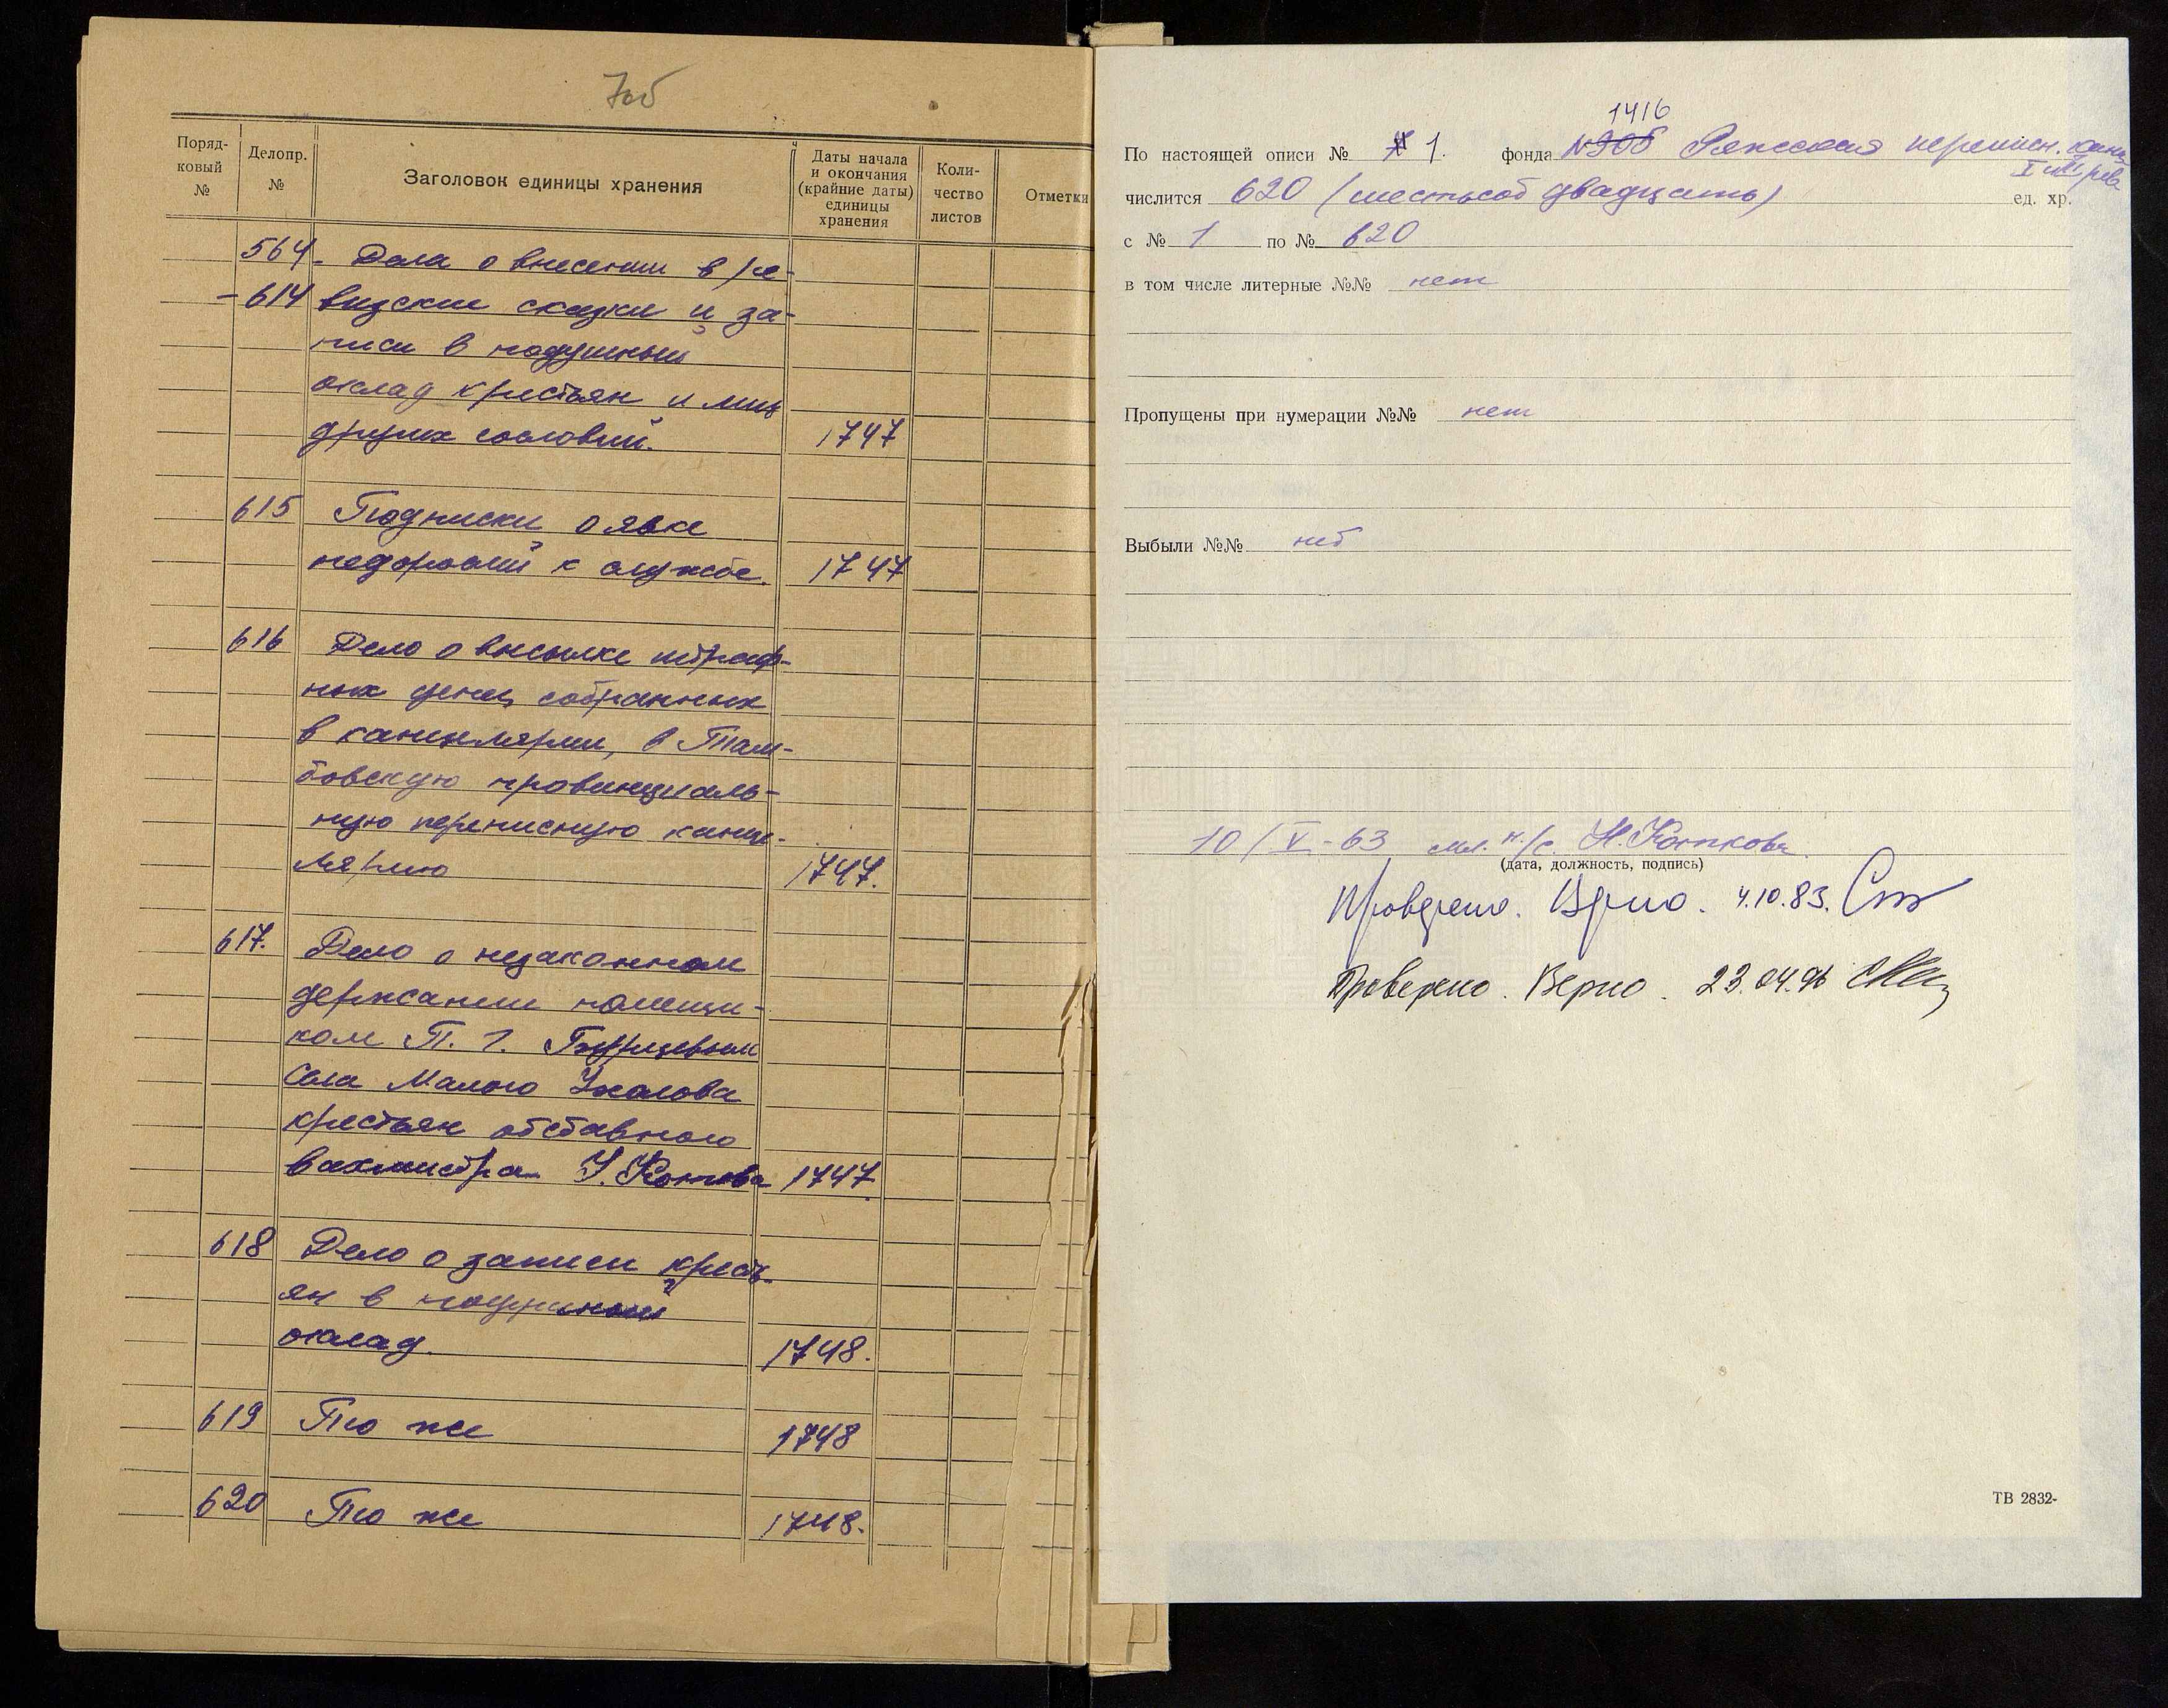 7об
Поряд-
ковый
№
Делопр.
№
Заголовок единицы хранения
Даты начала
и окончания
(крайние даты)
единицы
хранения
Коли-
чество
листов
Отметки
564- Дела о внесении в ре-
-614 визские сказки и за-
писи в подушный
оклад крестьян и лиц
других сословий. 1747
615 Подписки о явке
недорослей к службе. 1747
616 Дело о высылке штраф-
ных денег, собранных
в канцелярии, в Там-
бовскую провинциаль-
ную переписную канце-
лярию 1747.
617. Дело о незаконном
держании помещи-
ком П. Г. Бурцевым
села Малого Ухолова
крестьян отставного
вахмистра 1747.
618 Дело о записи кресть-
ян в подушный
оклад. 1748.
619 То же 1748
620 То же 1748.
1416
По настоящей описи № 1. фонда №908 Ряжская переписн. канц.
числится 620 (шестьсот двадцать) ед. хр.
с № 1 по № 620
в том числе литерные №№ нет
Пропущены при нумерации №№ нет
Выбыли №№ нет
10/V-63 мл. н./с. Н.
(дата, должность, подпись)
Проверено. Верно. 4.10.83.
Проверено. Верно. 23.04.96
ТВ 2832-